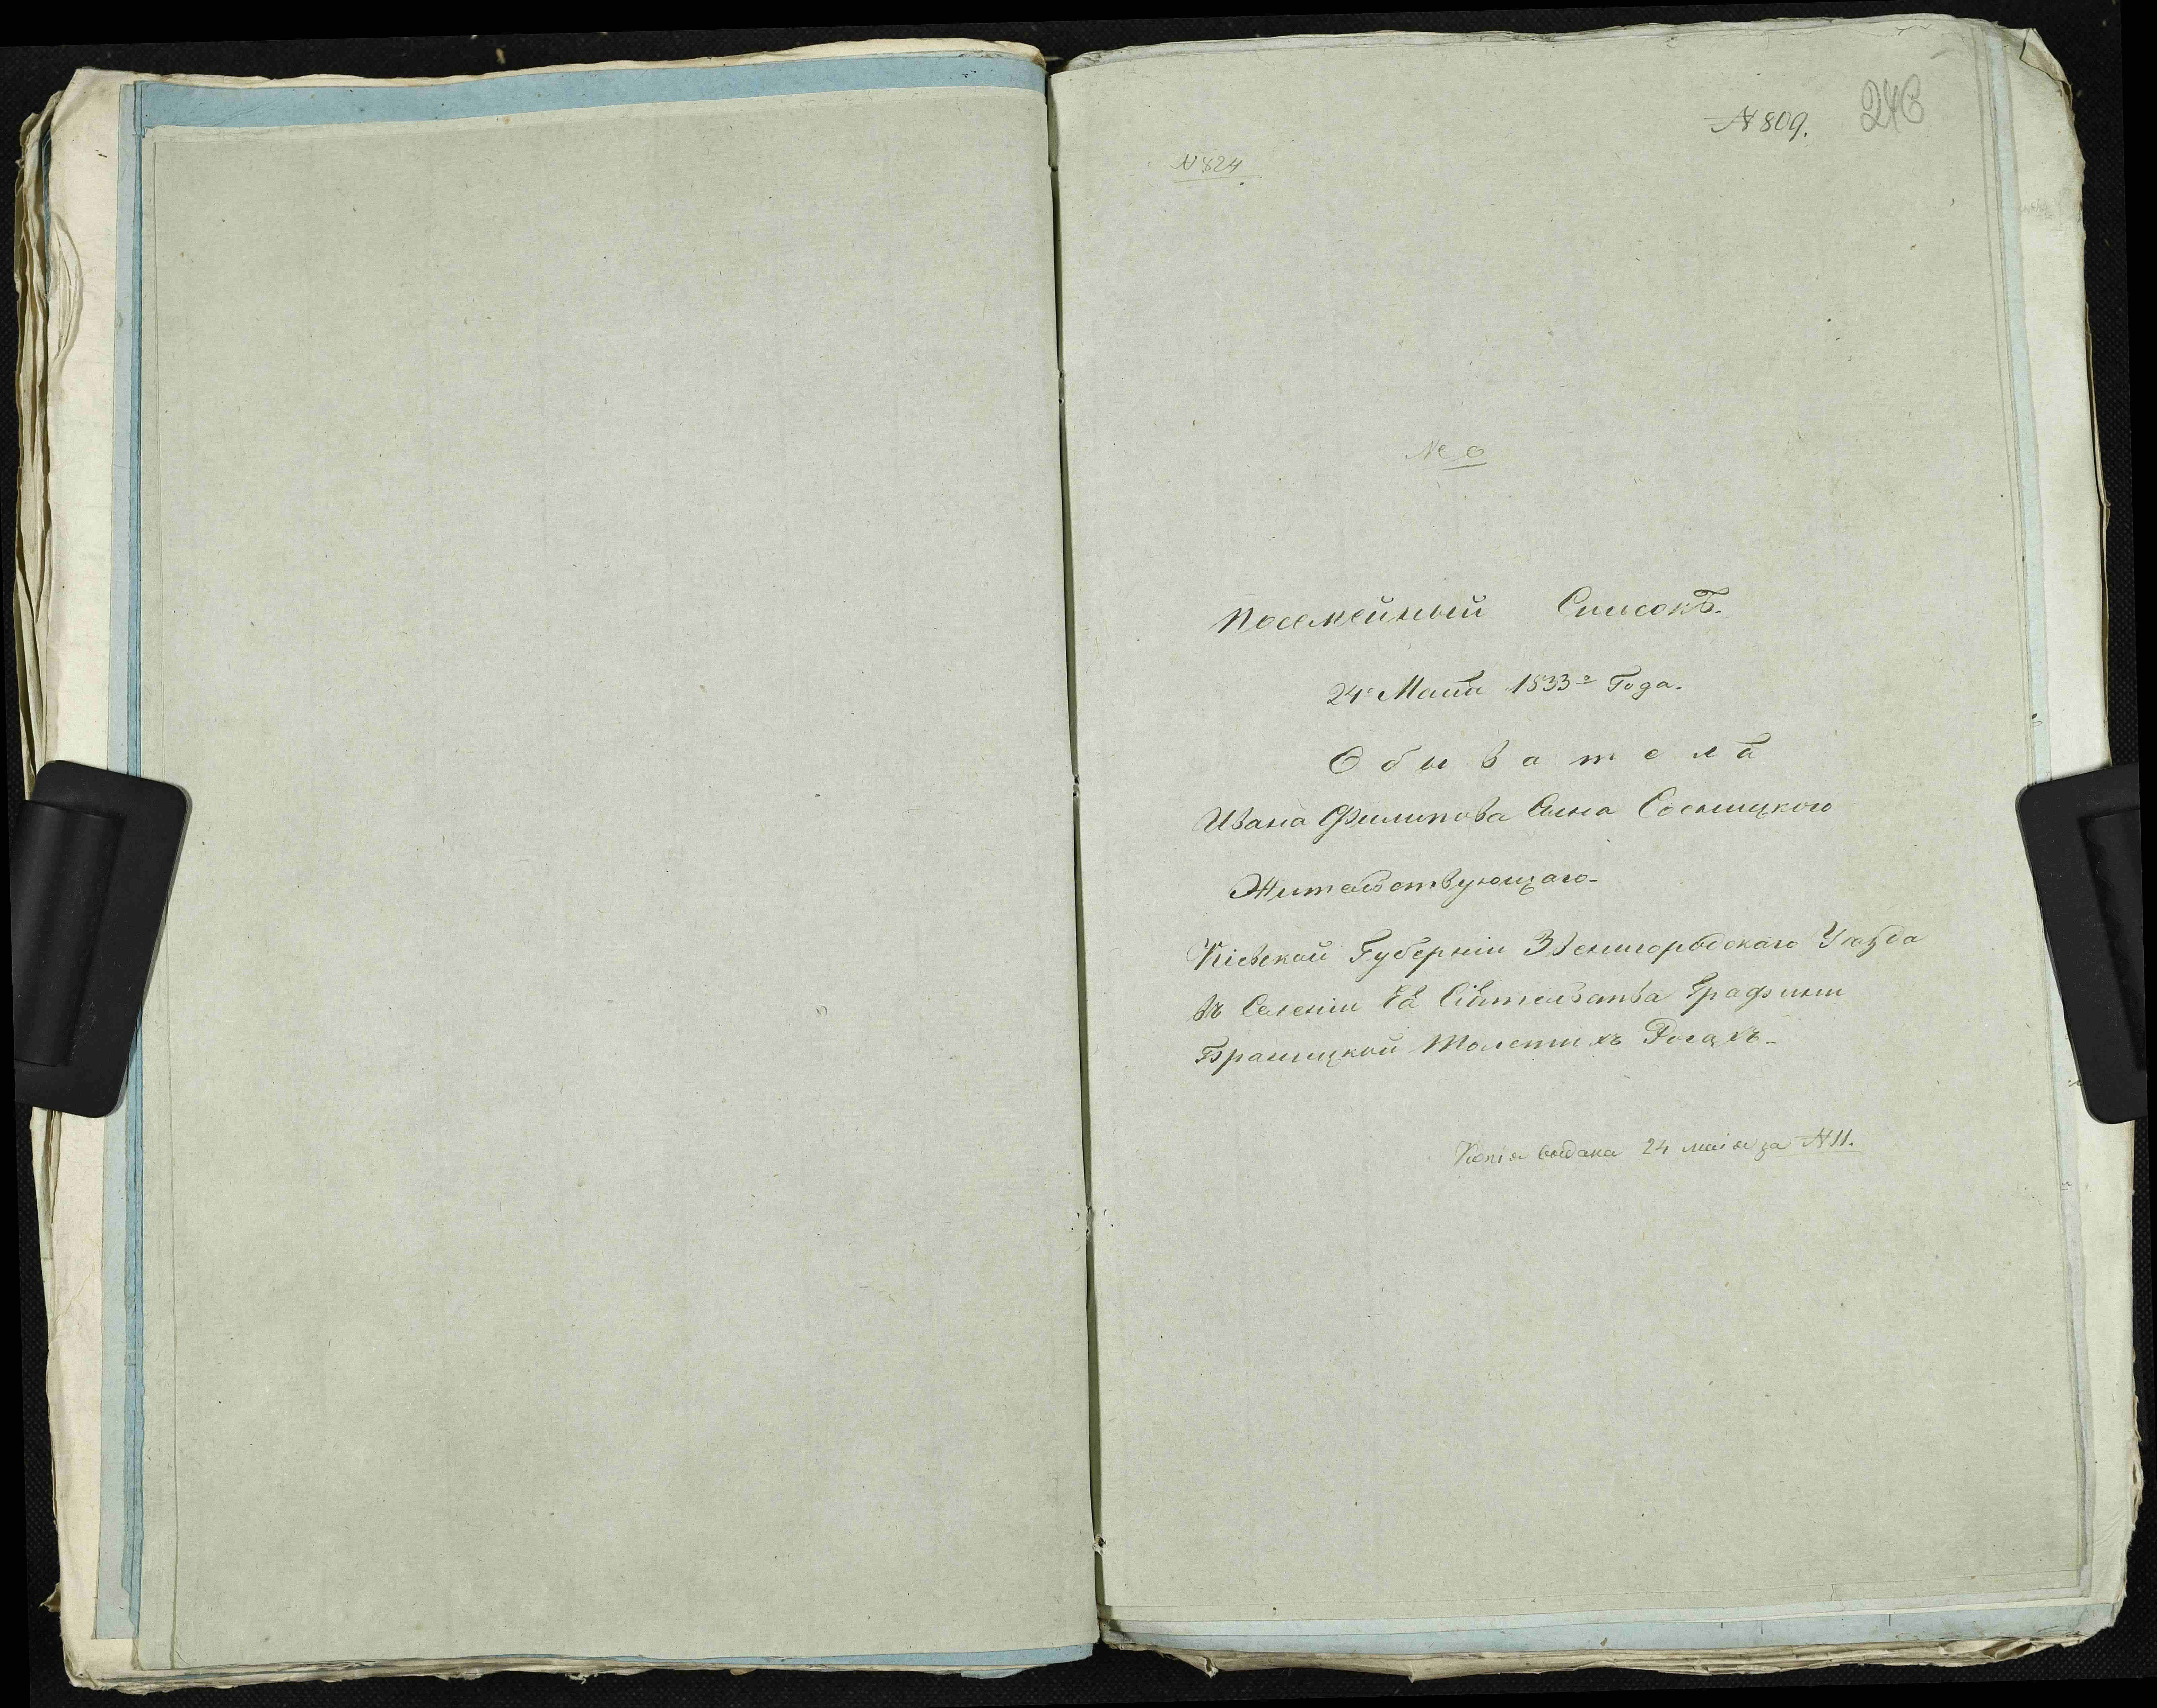 N 809. 246
N 824
№ 0
Посемейный Списокъ.
24го Маія 1833го Года.
Обывателя
Ивана Филипова Сына Сосницкого
Жительствующаго
Кіевской Губерніи Звенигородскаго Уезда
въ Селеніи Ея Сіятельства Графини
Браницкой Толстихъ Рогахъ
Копія выдана 24 маія за N 11.